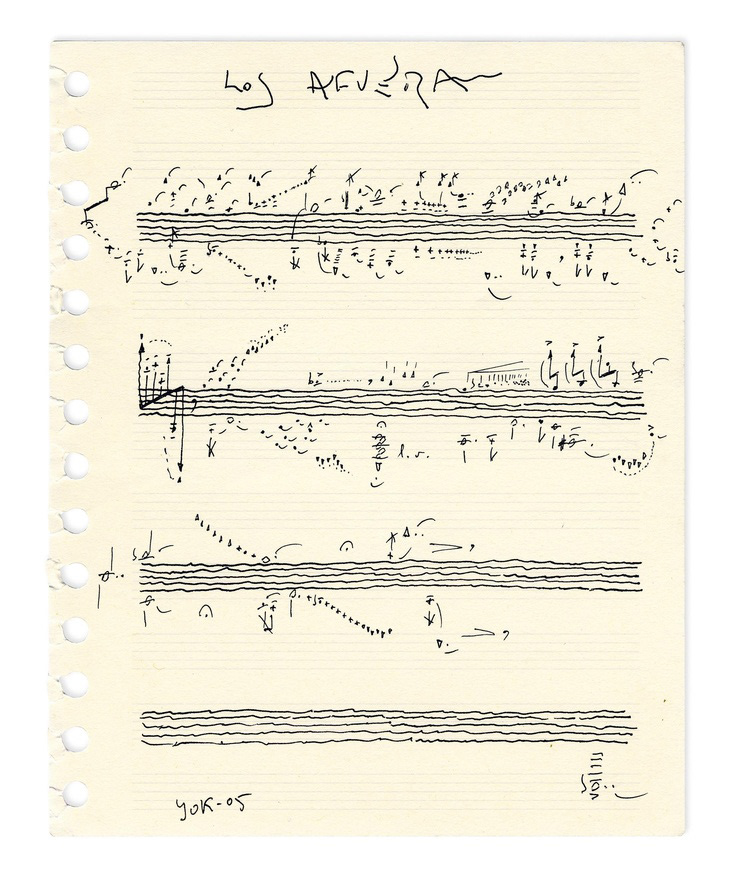 LOS AFUERA
l.v.
YOK-05